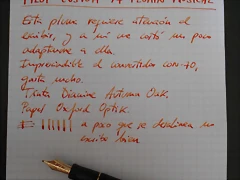 PILOT CUSTOM 74 PLUMÍN MUSICAL
Esta pluma requiere atención al
escribir, y a mi me costó un poco
adaptarme a ella.
Imprescindible el convertidor con-70,
gasta mucho.
Tinta Diamine Autumn Oak.
Papel Oxford Optik.
a poco que se desalinea no
escribe bien